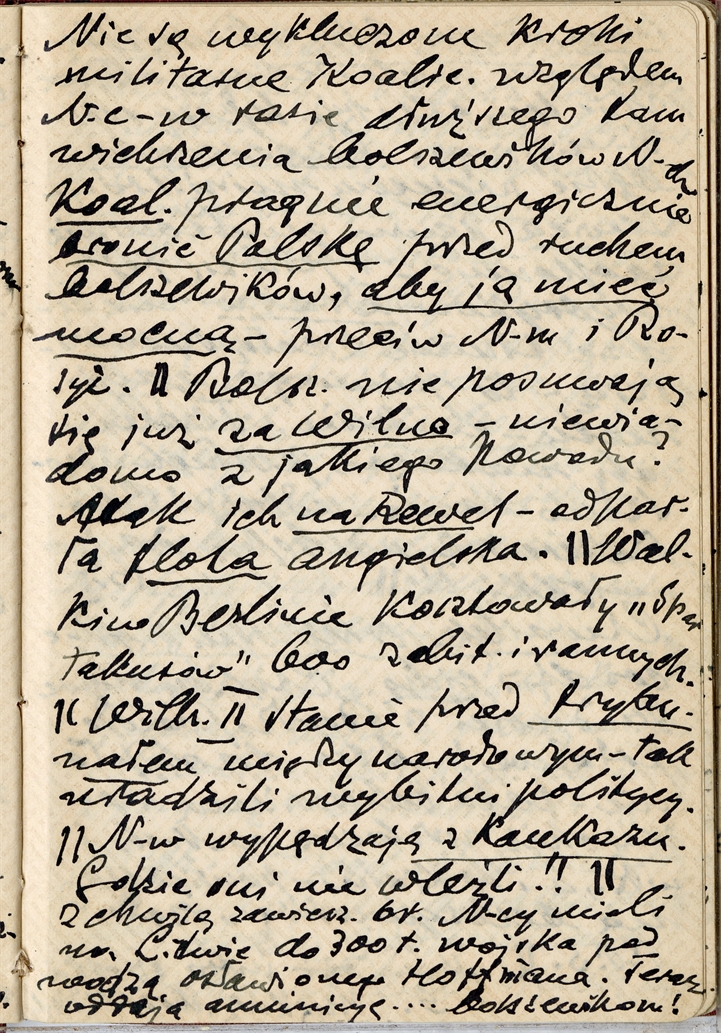 Nie są wykluczone kroki
militarne Koalic. względem
N-c - w razie dłuższego tam
wichrzenia bolszewików N-ch
Koal. pragnie energicznie
bronić Polskę przed ruchem
bolszewików, aby ją mieć
mocną - przeciw N-m i Ro-
syi. || Bolsz. nie posuwają
się już za Wilno - niewia-
domo z jakiego powodu?
Atak ich na Rewel - odpar-
ła flota angielska. || Wal-
ki w Berlinie kosztowały "Spar
takusów" 600 zabit. i rannych.
|| Wilh. II stanie przed trybu-
nałem międzynarodowym - tak
uradzili wybitni politycy.
|| N-w wypędzają z Kaukazu.
Gdzie oni nie wleźli!! ||
Z chwilą zawiesz. br. N-cy mieli
na Litwie do 300 t. wojska pod
wodzą osławionego Hoffmana. Teraz
oddają amunicyę.... bolszewikom!